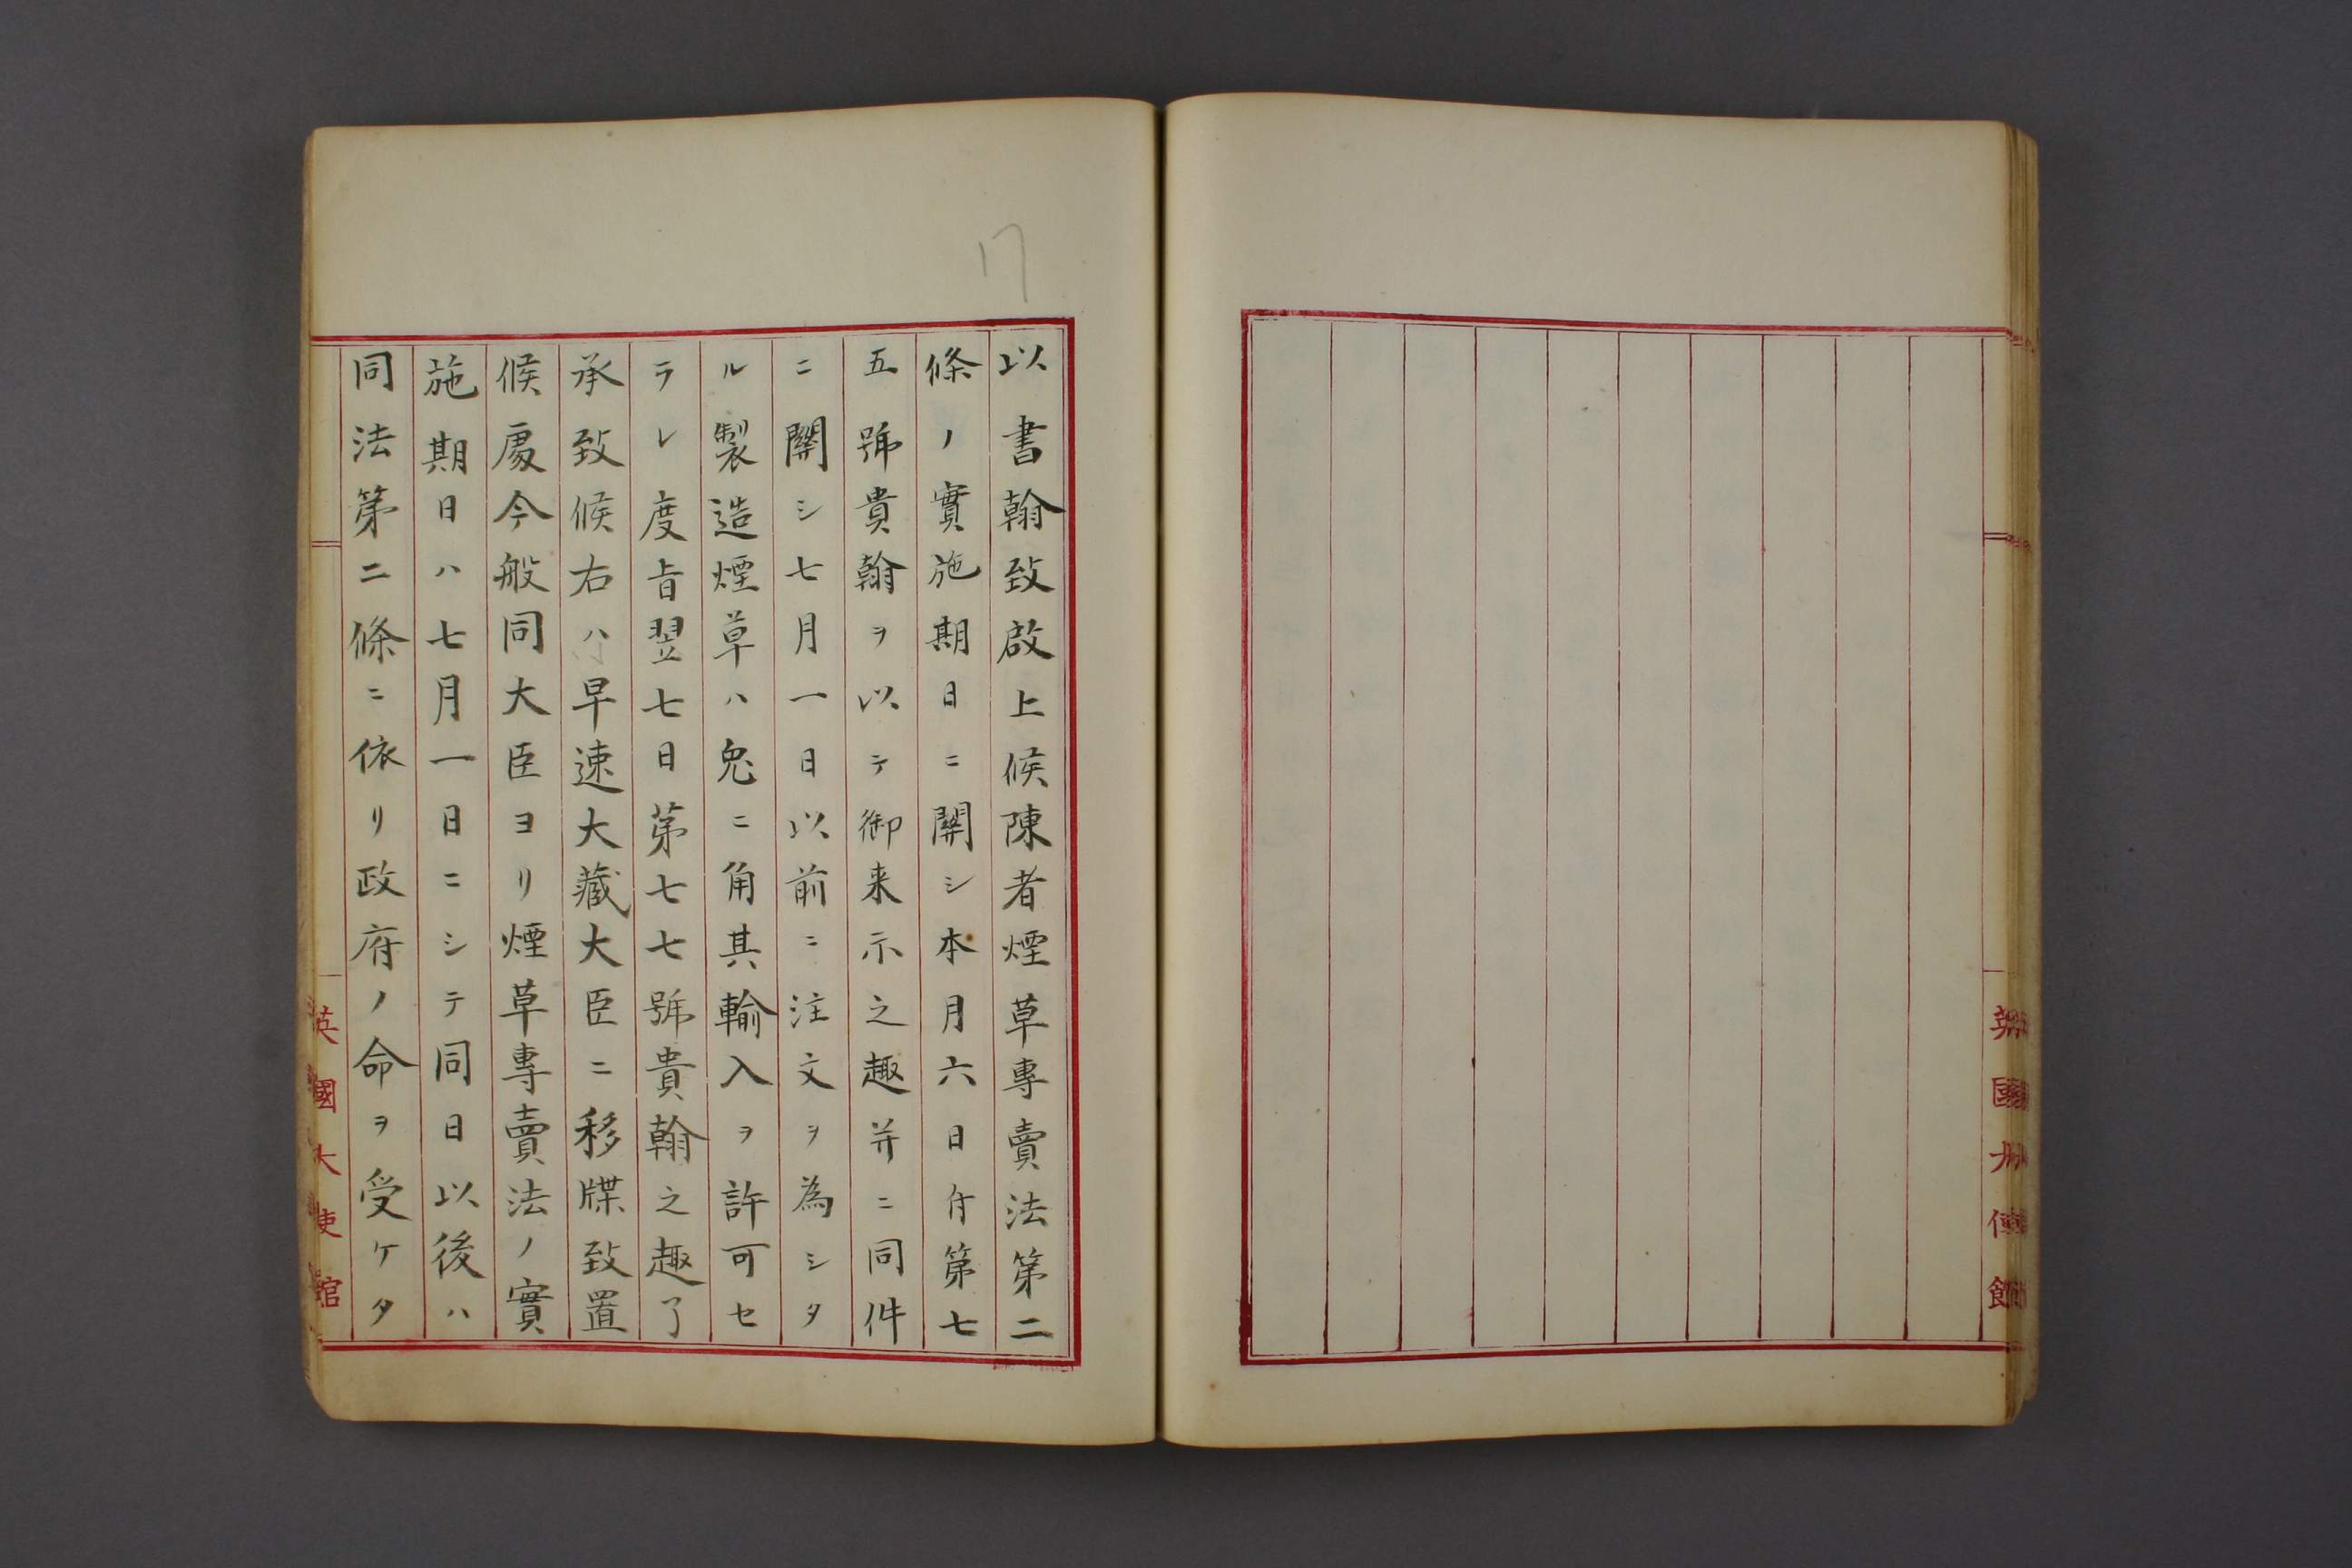 17
以書翰致啟上候陳者煙草專賣法第二
條ノ實施期日ニ關シ本月六日付第七
五號貴翰ヲ以テ御来示之趣并ニ同件
ニ關シ七月一日以前ニ注文ヲ為シタ
ル製造煙草ハ兔ニ角其輸入ヲ許可セ
ラレ度旨翌七日第七七號貴翰之趣了
承致候右ハ早速大藏大臣ニ移牒致置
候處今般同大臣ヨリ煙草專賣法ノ實
施期日ハ七月一日ニシテ同日以後ハ
同法第二條ニ依リ政府ノ命ヲ受ケタ
英國大使館